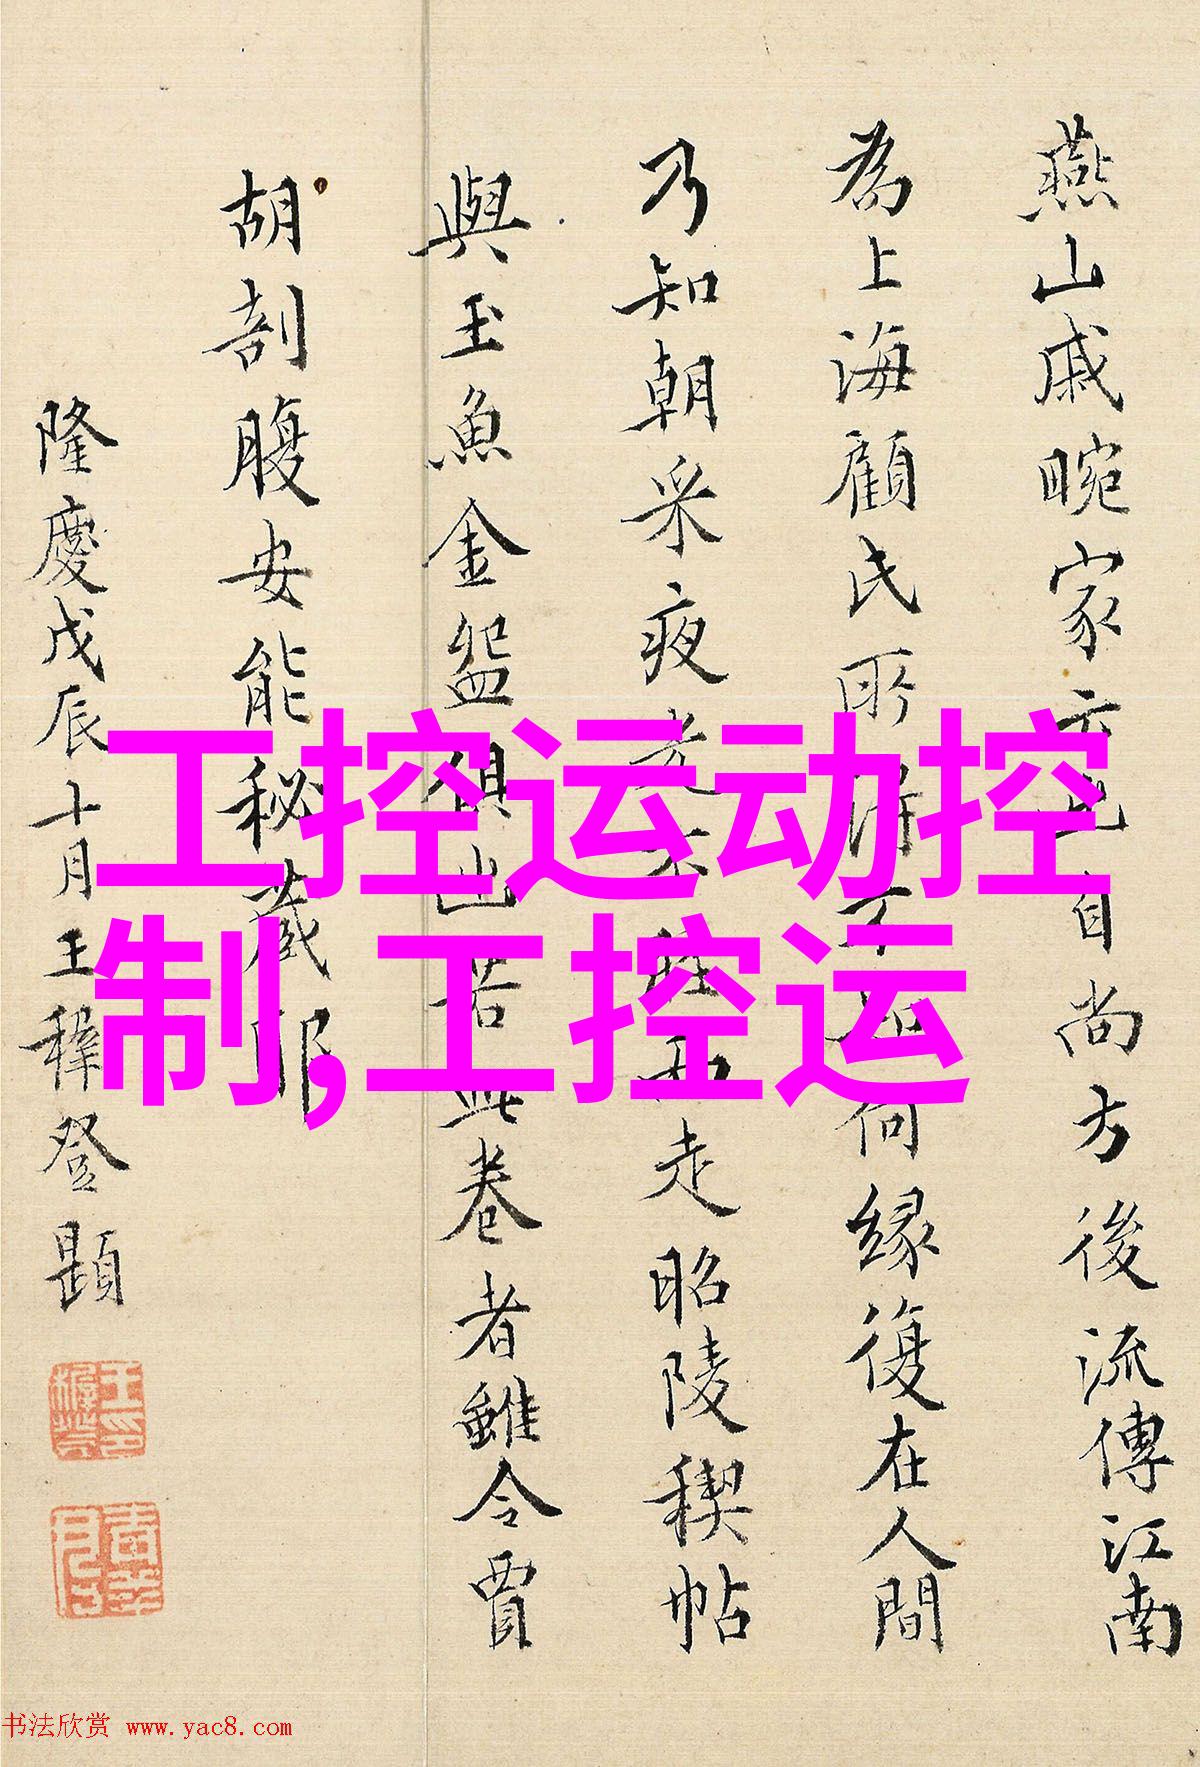 燕山戚畹家云是自尚方後流傳江南
為上海顧氏所得不知何緣復在人間
乃知朝采夜光不脛而走昭陵稧帖
與玉魚金盌俱出若此卷者雖令賈
胡剖腹安能秘藏耶
隆慶戊辰十月王穉登題
工控运动控
制,工控运
书法欣赏 www.yac8.com